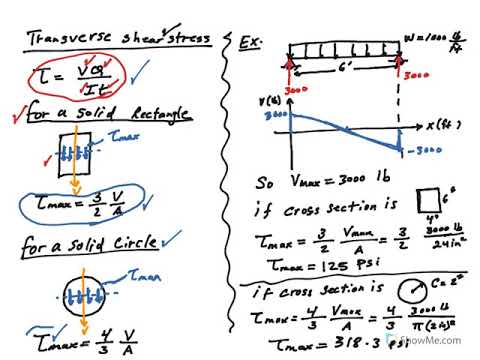 Transverse shear stress
τ = VQ / It
for a solid Rectangle
τmax
τmax = 3/2 V/A
for a solid Circle
τmax
τmax = 4/3 V/A
Ex.
W = 1000 lb/ft
6'
3000 3000
V(lb)
3000
x(ft)
-3000
So Vmax = 3000 lb
if cross section is 6" 4"
τmax = 3/2 Vmax/A = 3/2 3000 lb/24in²
τmax = 125 psi
if cross section is C = 2"
τmax = 4/3 Vmax/A = 4/3 3000 lb/π(2in)²
τmax = 318.3 psi
ShowMe.com